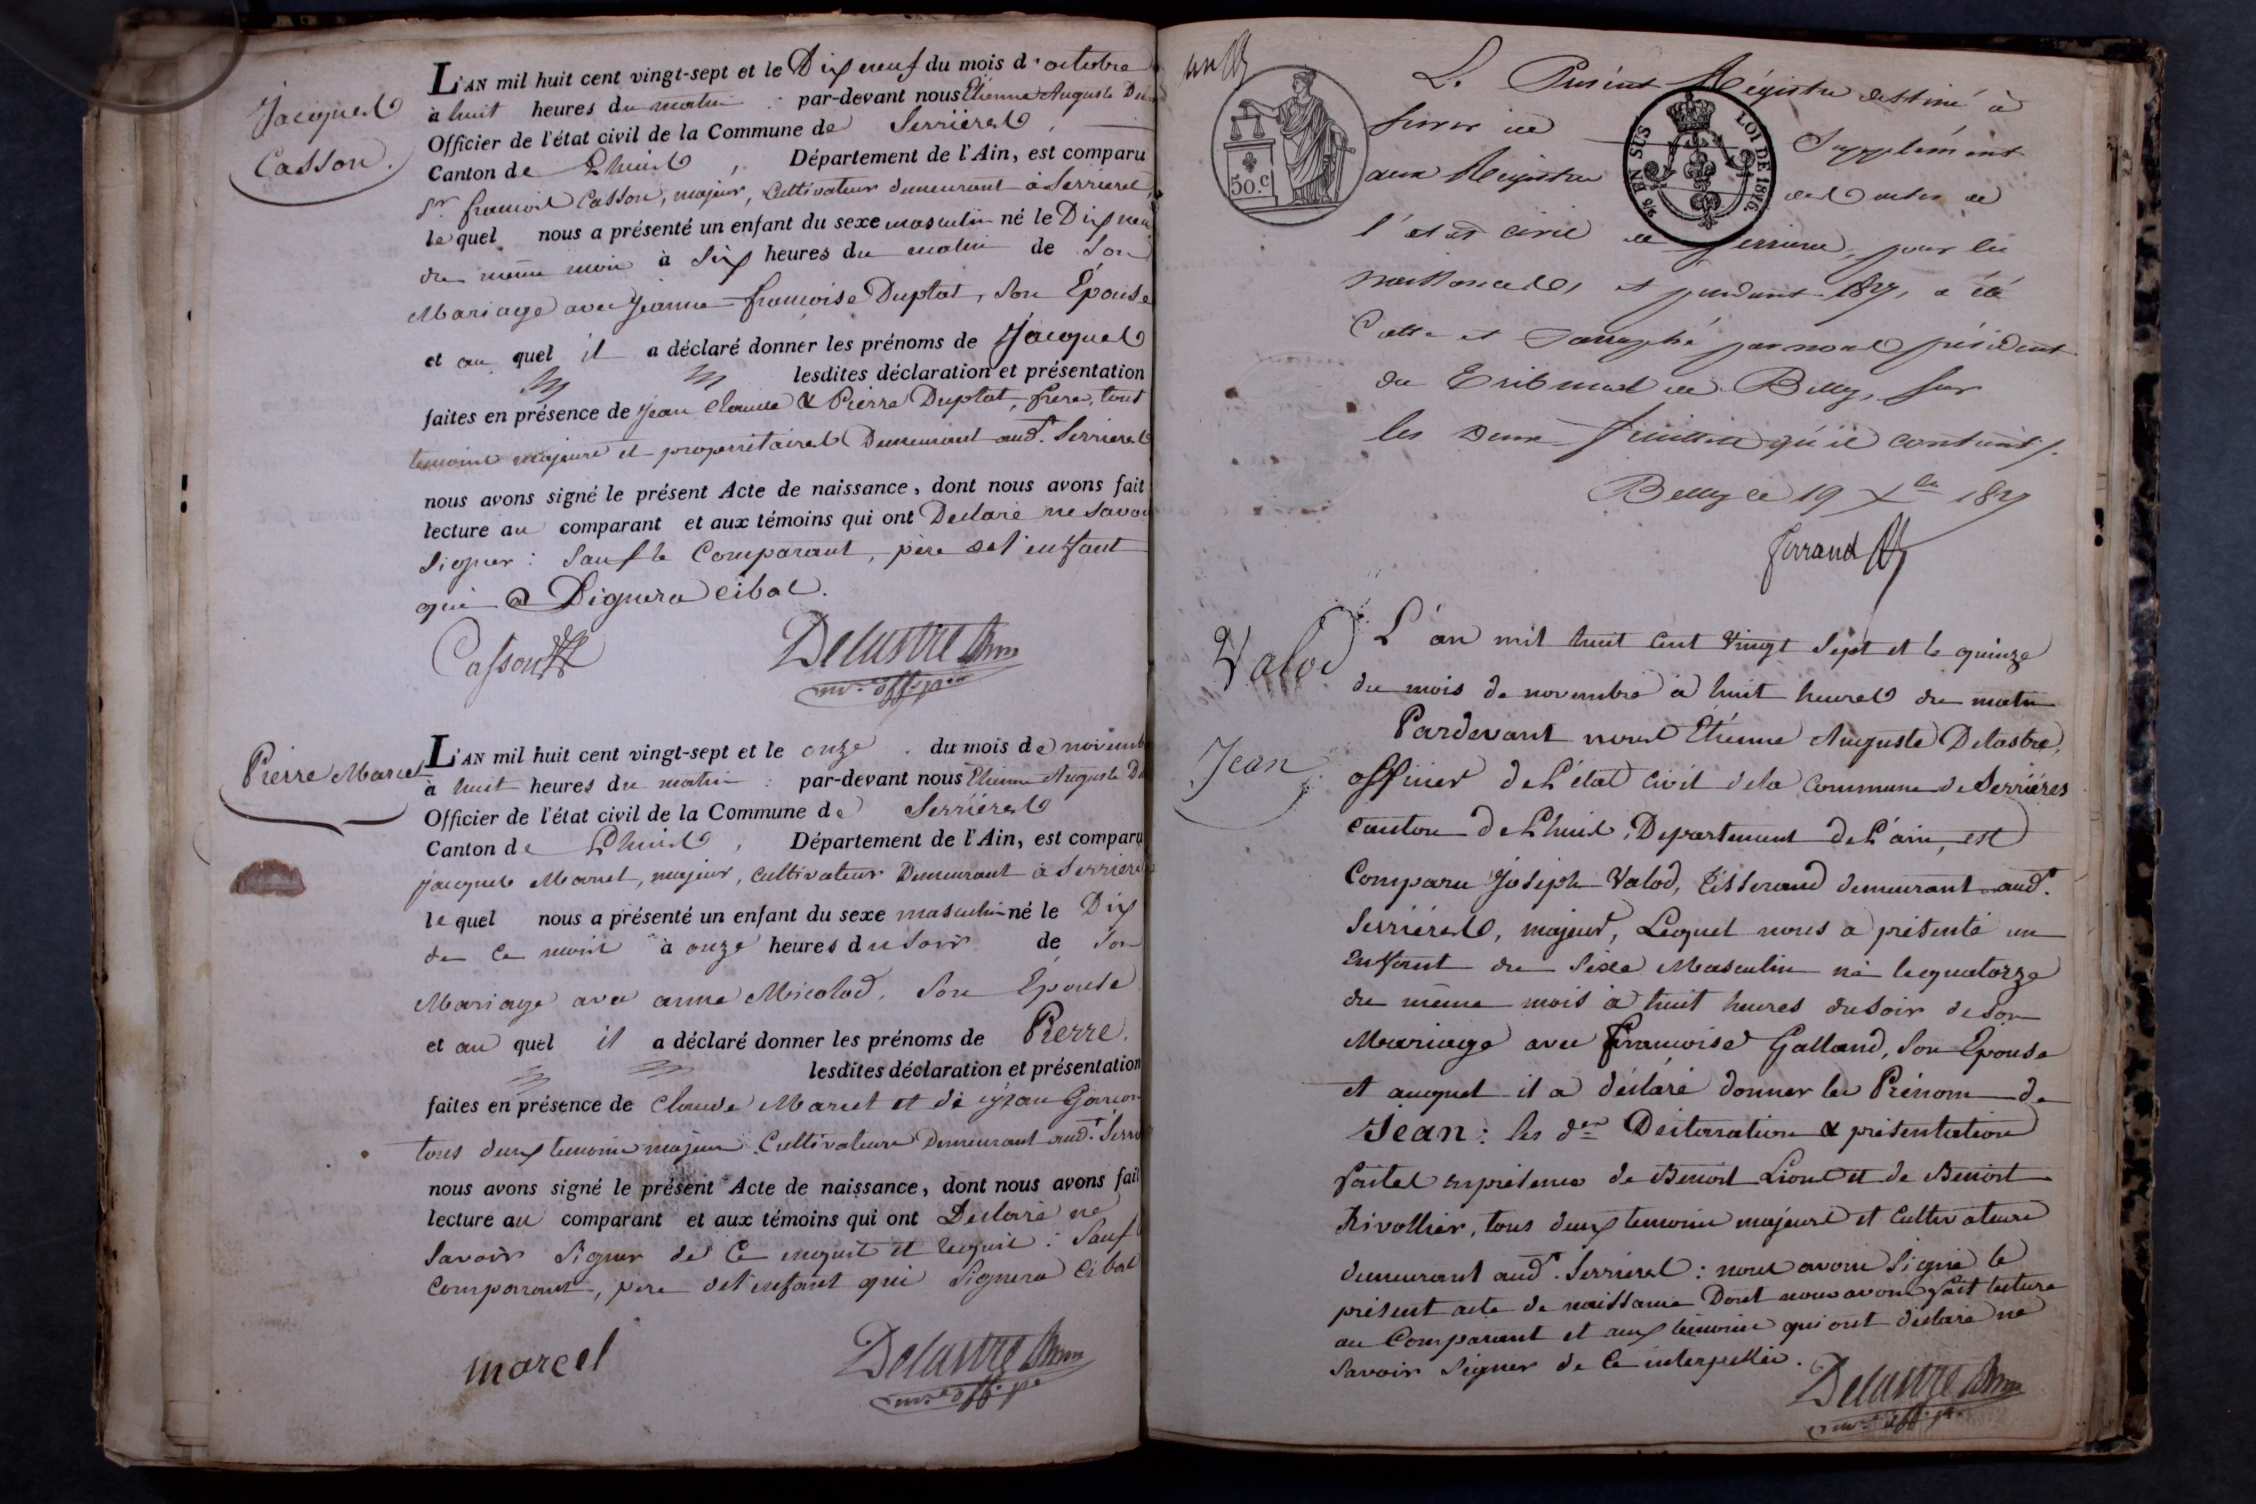 Jacques
Casson.
L'AN mil huit cent vingt-sept et le Dix neuf du mois d'octobre
à huit heures du matin : par-devant nous Etienne Auguste
Officier de l'état civil de la Commune de Serrières,
Canton de Lhuis, Département de l'Ain, est comparu
Sr. françois Casson, majeur, cultivateur demeurant à Serrieres,
lequel nous a présenté un enfant du sexe masculin né le Dix neuf
du même mois à Six heures du matin de Son
Mariage avec Jeanne-françoise Duplat, Son Epouse
et au quel il a déclaré donner les prénoms de Jacques
lesdites déclaration et présentation
faites en présence de Jean Claude & Pierre Duplat, frère, tous
temoins majeurs et propriétaires Demeurant aud.t Serrieres
nous avons signé le présent Acte de naissance, dont nous avons fait
lecture au comparant et aux témoins qui ont Declaré ne Savoir
Signer : Sauf le Comparant, père de l'enfant
qui a Signera cibas.
Casson
Delastre
Pierre Marcel
L'AN mil huit cent vingt-sept et le onze du mois de novemb
à huit heures du matin : par-devant nous Etienne Auguste De
Officier de l'état civil de la Commune de Serrières
Canton de Lhuis, Département de l'Ain, est comparu
jacques Marcel, majeur, cultivateur Demeurant à Serrieres
lequel nous a présenté un enfant du sexe masculin né le Dix
de ce mois à onze heures du soir de Son
Mariage avec anne Micolod, Son Epouse
et au quel il a déclaré donner les prénoms de Pierre.
lesdites déclaration et présentation
faites en présence de Claude Marcel et de
tous deux temoins majeurs Cultivateurs Demeurant aud.t Serri
nous avons signé le présent Acte de naissance, dont nous avons fait
lecture au comparant et aux témoins qui ont Declaré ne
Savoir Signer de Ce enquis et requis : Sauf
Comparant, père de l'enfant qui Signera cibas
marcel
Delastre
50.c
EN SUS
LOI DE 1816.
Le Présent Régistre destiné à
Servir de Supplément
aux Registres des actes de
l'état civil de Serrieres, pour les
naissances, et pendant 1827, a été
Cotté et Parraphé par nous président
du Tribunal de Belley, Sur
les Deux feuillets qu'il contient.
Belley le 19 Xbre 1827
ferrand
Valod
Jean
L'an mil huit Cent Vingt Sept et le quinze
du mois de novembre à huit heures du matin
Pardevant nous Etienne Auguste Delastre,
officier de L'état civil de la Commune de Serrières
Canton de Lhuis, Departement de L'ain, est
Comparu Joseph Valod, Tisserand demeurant aud.t
Serrières, majeur, Lequel nous a présenté un
Enfant du Sexe Masculin né le quatorze
du même mois à huit heures du soir de son
Mariage avec françoise Galland, Son Epouse
et auquel il a déclaré donner les Prénom de
Jean : les d.es Déclaration & présentation
faites en présence de Benoit Lion et de Benoit
Rivollier, tous deux temoins majeurs et Cultivateurs
demeurant aud.t Serrieres : nous avons Signé le
présent acte de naissance Dont nous avons fait lecture
au Comparant et aux temoins qui ont déclaré ne
Savoir Signer de Ce interpellés.
Delastre